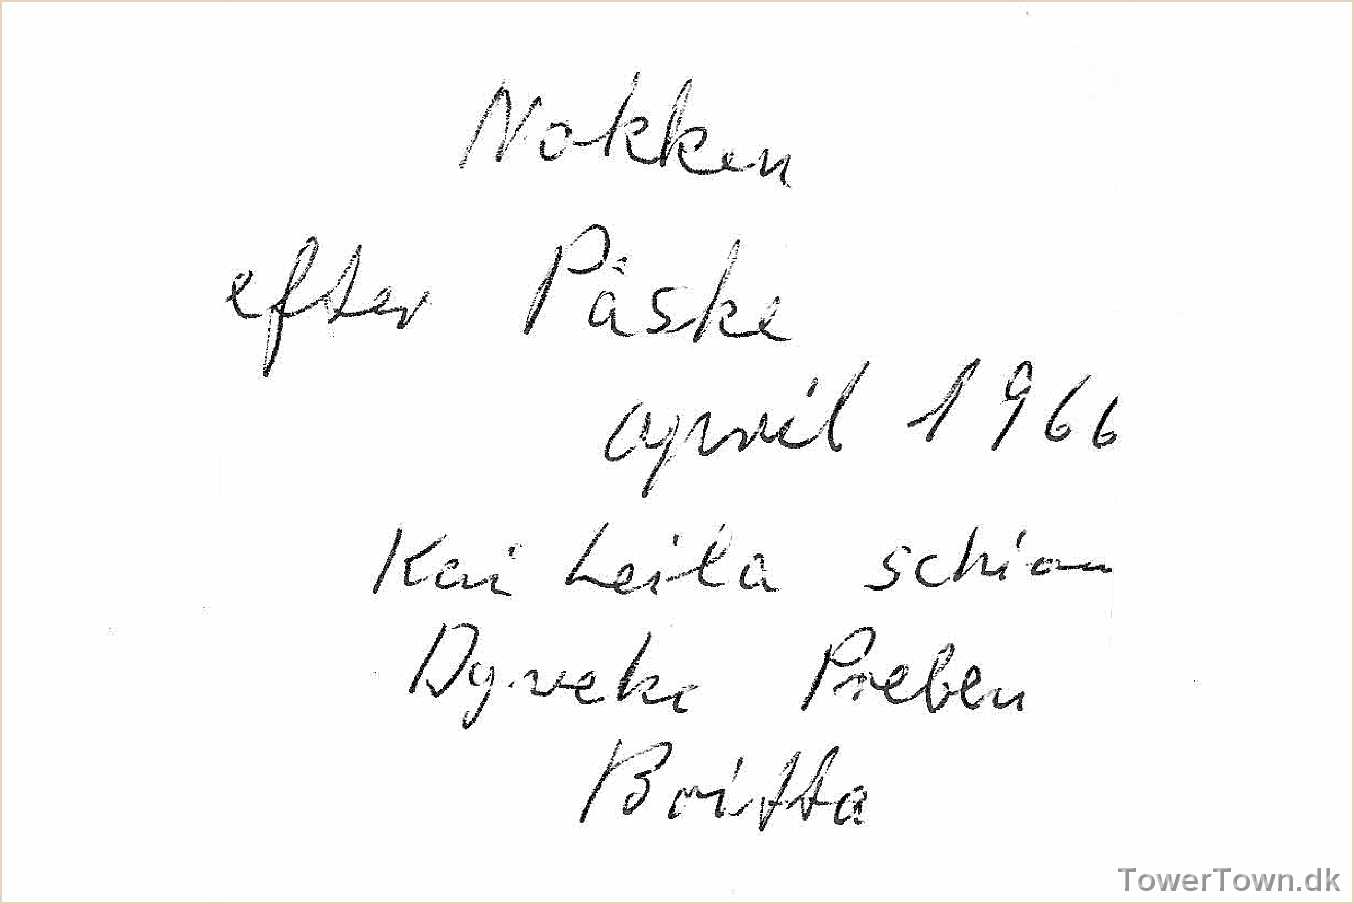 Nokken
efter Påske
april 1966
Kai Leila Schiøn
Dyveke Preben
Britta
TowerTown.dk